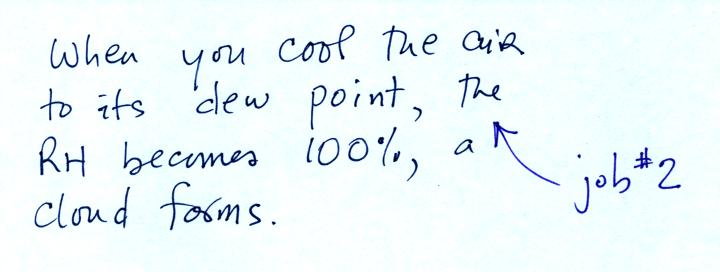 When you cool the air
to its dew point, the
RH becomes 100%, a
cloud forms.
job #2